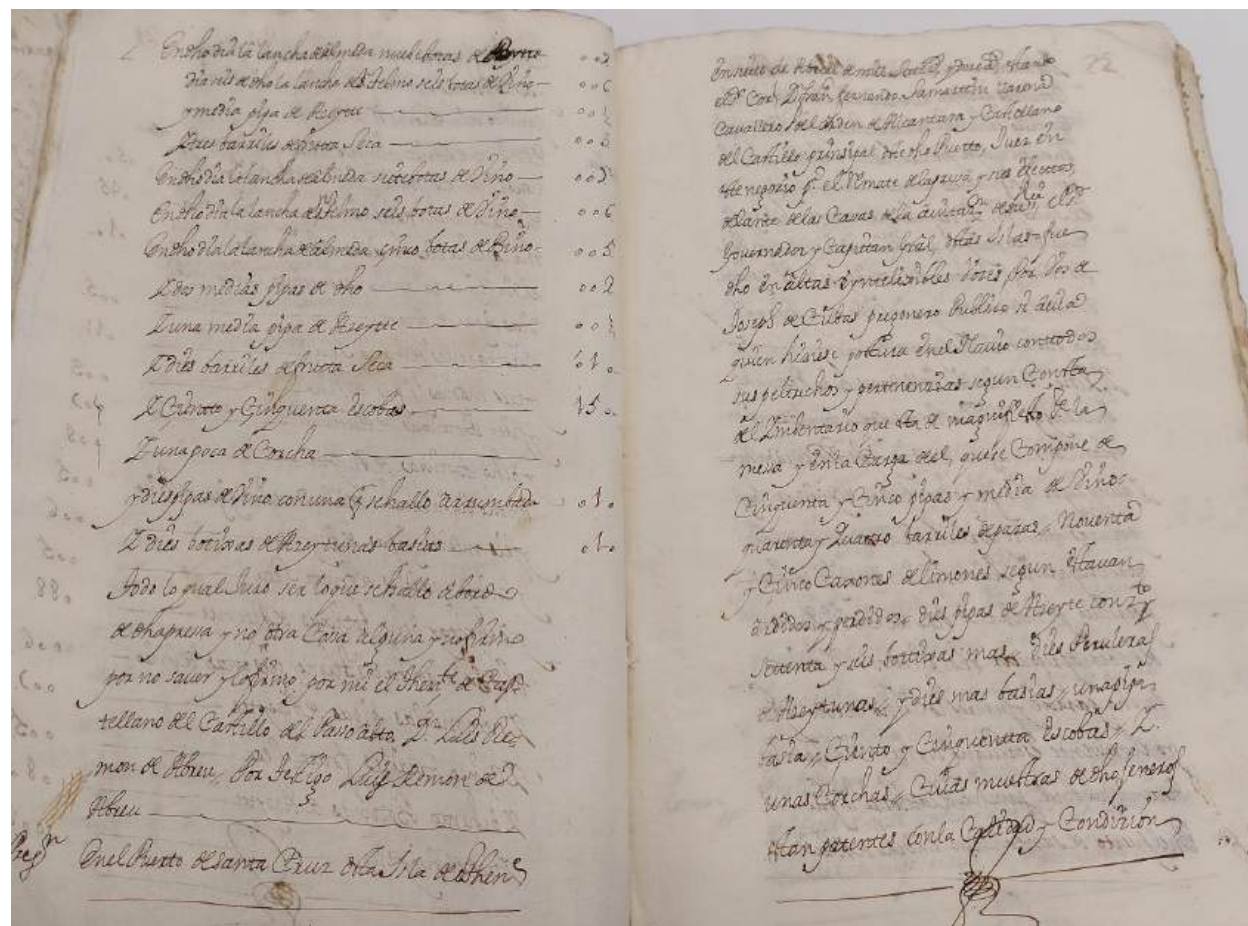 En dho dia la lancha de Almeda nuebe botas de
dia seis de dho la lancha de S Telmo seis botas de Viño 006
y media pipa de Azeyte 00½
Y tres barriles de fruta Seca 003
En dho dia la lancha de Almeda siete botas de Viño
En dho dia la lancha de S Telmo seis botas de Viño 006
En dho dia la lancha de Almeda sinco botas de Biño 005
Y dos medias pipas de dho 002
Y una media pipa de Azeyte 00½
Y dies barriles de fruta Seca
Y Ciento y Cinquenta escobas 150
Y una poca de Corcha
y dies pipas de Viño con una q se hallo arrumbada 010
Y dies botixas de Azeytunas basias 010
todo lo qual Juro ser lo que se hallo a bordo
de dha presa y no otra Cosa alguna y no firmo
por no saver y lo firmo por mi el Thente de Cas
tellano del Castillo del Paso alto Dn Luis Rie
mon de Abreu, Por testigo Luis Remon de
Abreu
Pregn
En el Puerto de Santa Cruz desta Isla de Then
22
en nuebe de Abril de mill estando
el Sr Cor Dn fran fernando Samartin
Cavallero del orden de Alcantara y Castellano
del Castillo prinsipal de dho Puerto, Juez en
este negosio pa el Remate de la presa y sus efectos,
delante de las Casas de la el Sr
Governador y Capitan Gral, destas Islas fue
dho en altas e yntelixibles voses por bos de
Joseph de Cubas pregonero Publico si avia
quien hisiese postura en el Navio con todos
sus peltrechos y pertenensias segun Consta
del Imbentario que esta de
mesa y en la Carga del, que se Compone de
Cinquenta y Cinco pipas y media de Vino
quarenta y Quatro barriles de pasas, Noventa
y Cinco Caxones de limones segun estavan
y perdidos, dies pipas de Azeyte con
setenta y seis botixas mas, Dies Peruleras
de Azeytunas, y dies mas basias, una pipa
basia, Ciento y Cinquenta Escobas, Y
unas Corchas, Cuias muestras de dhos generos
estan patentes con la Calidad y Condision